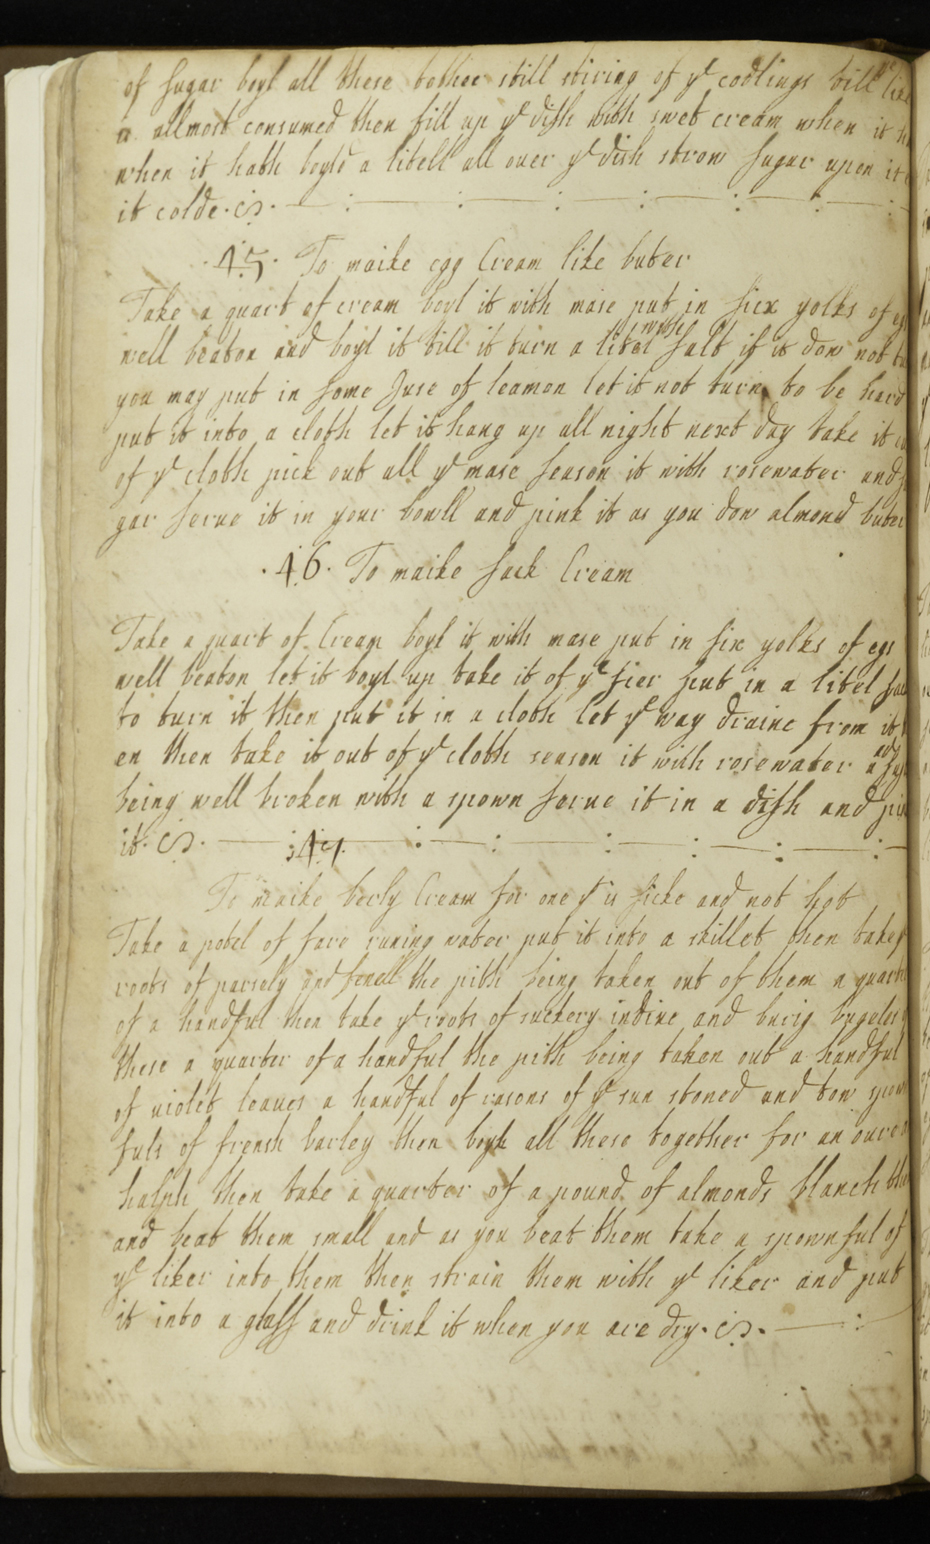 of sugar boyl all these tother still stiring of yͤ codlings till
allmost consumed then fill up yͤ dish with swet cream when it
when it hath boyld a litell all over yͤ dish strow sugar upon it
it colde.
.45. To maike egg Cream like buter
Take a quart of cream boyl it with mase put in sicx yolks of
well beaton and boyl it till it turn a litel with salt if it dow not
you may put in some Juse of leamon let it not turn to be hard
put it into a cloth let it hang up all night next day take it
of yͤ cloth pick out all yͤ mase season it with rosewater and
gar serve it in your bowll and pink it as you dow almond buter
.46. To maike sack Cream
Take a quart of Cream boyl it with mase put in six yolks of egs
well beaton let it boyl up take it of yͤ fier put in a litel
to turn it then put it in a cloth let yͤ way draine from it
en then take it out of yͤ cloth season it with rosewater and
being well broken with a spown serve it in a dish and
it.
47
To maike berly Cream for one yͭ is sicke and not hot
Take a potel of fare runing water put it into a skillet then take
roots of parsely and fenell the pith being taken out of them a quarter
of a handful then take yͤ roots of suckery indive and
these a quarter of a handful the pith being taken out a handful
of violet leaves a handful of rasons of yͤ sun stoned and tow
fuls of frensh barley then boyle all these together for an oure
halph then take a quarter of a pound of almonds blanch
and beat them small and as you beat them take a spownful of
yͤ liker into them then strain them with yͤ liker and put
it into a glass and drink it when you are dry.